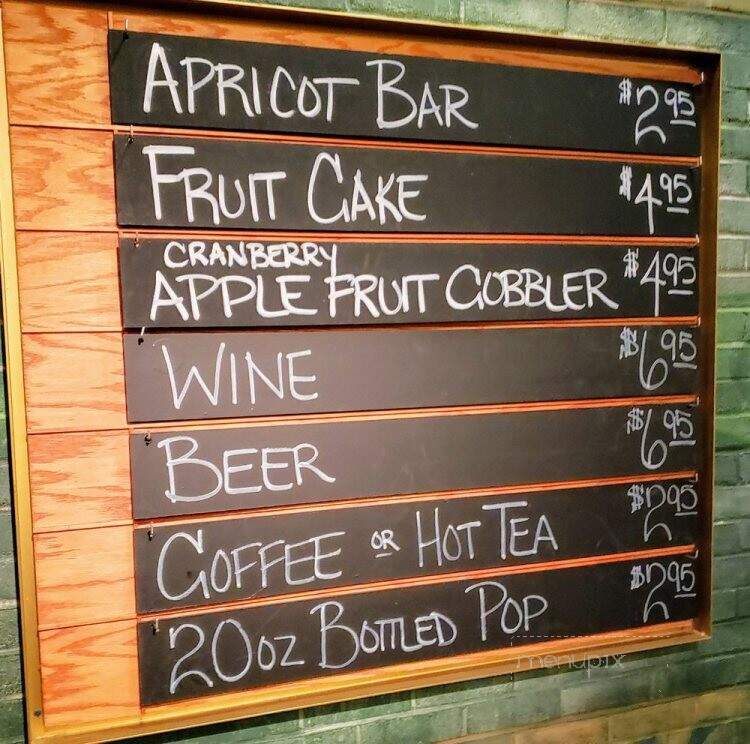 APRICOT BAR $2.95
FRUIT CAKE $4.95
CRANBERRY
APPLE FRUIT COBBLER $4.95
WINE $6.95
BEER $6.95
COFFEE OR HOT TEA $2.95
20oz BOTTLED POP $2.95
menupix